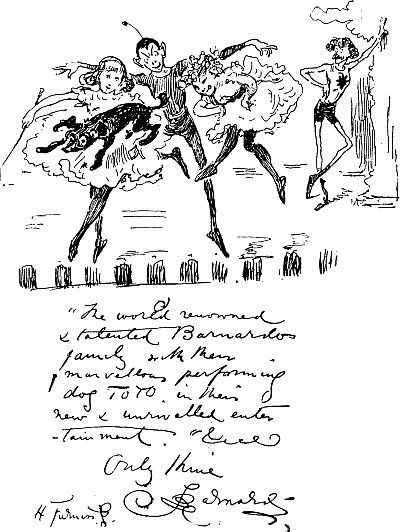 "The world renowned
& talented Barnardos
family with their
marvellous performing
dog TOTO. in their
new & unrivalled enter
-tainment.
Only thine
Barnard
H Furniss